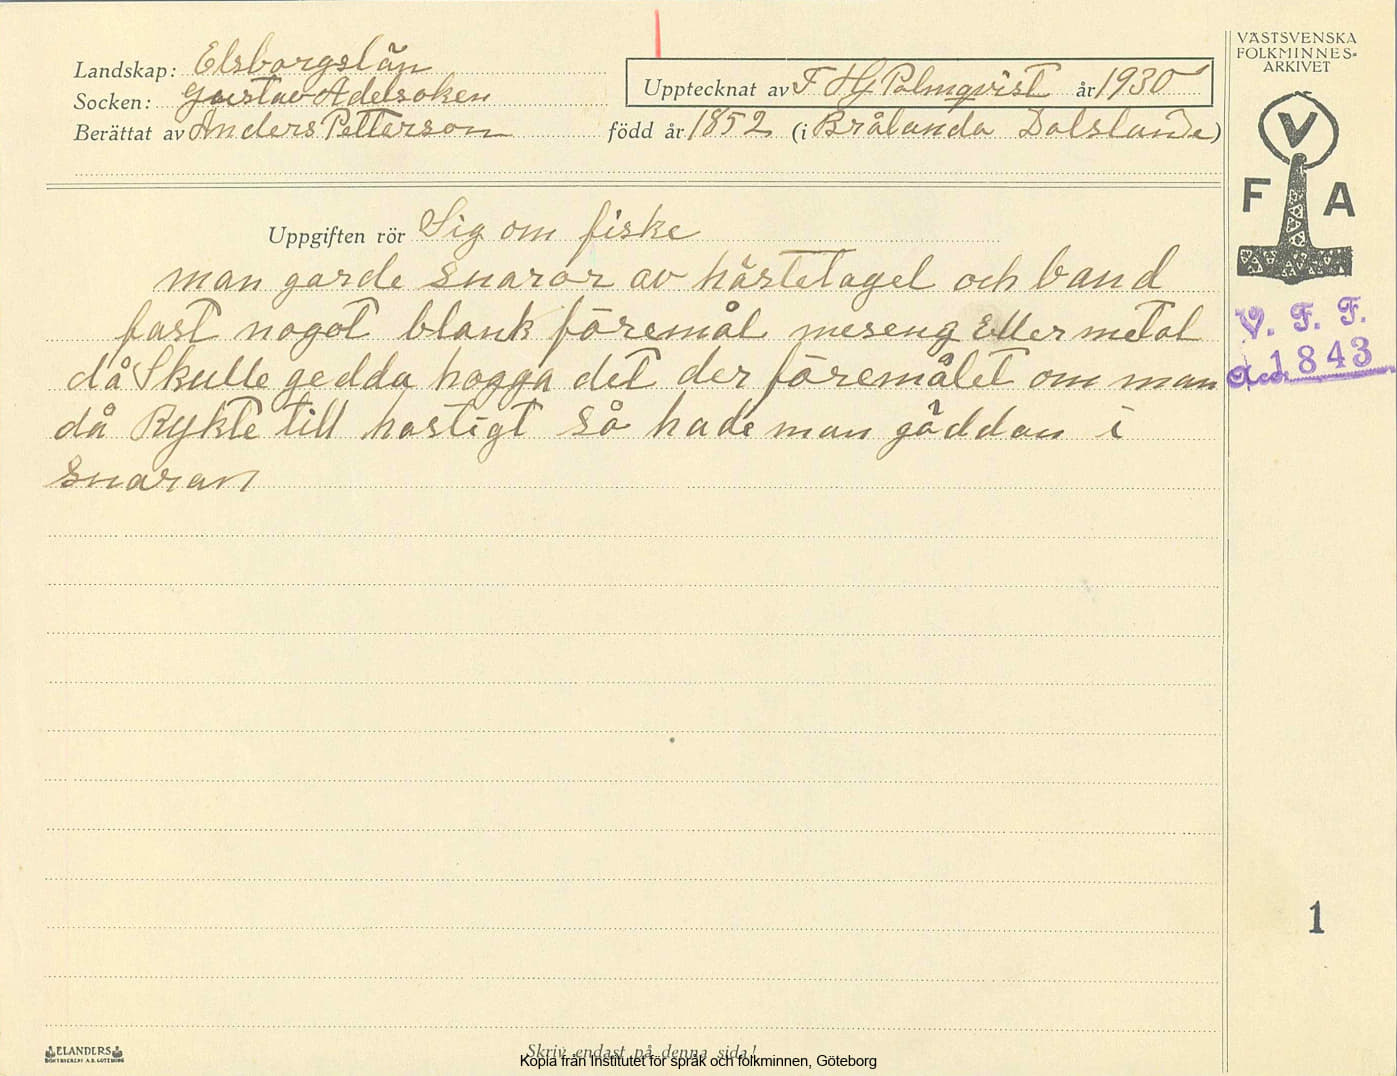 VÄSTSVENSKA
FOLKMINNES-
ARKIVET
Landskap: Elsborgslän
Socken: Gustav Adelsoken
Upptecknat av F Hj Palmqvist år 1930
Berättat av Anders Petterson född år 1852 (i Brålanda Dalslande)
V
F A
Uppgiften rör Sig om fiske
man garde snaror av hästetagel och band
fast nogot blank föremål meseng Eller metal
då Skulle gedda hogga det der föremålet om man
då Rykte till hastigt så hade man gäddan i
snaran
V. F. F.
Acc. 1843
1
ELANDERS
BOKTRYCKERI A.B. GÖTEBORG
Skriv endast på denna sida!
Kopia från Institutet för språk och folkminnen, Göteborg